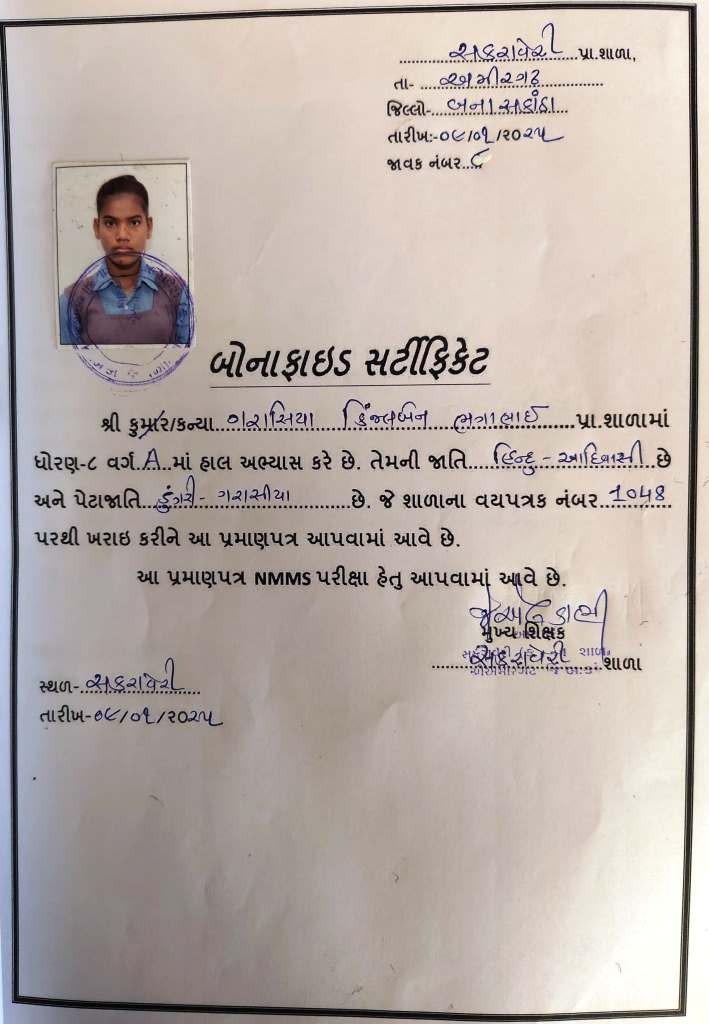 સકરાવેરી પ્રા.શાળા,
તા- અમીરગઢ
જિલ્લો- બનાસકાંઠા
તારીખ:-૦૯/૦૧/૨૦૨૫
જાવક નંબર..
બોનાફાઇડ સર્ટીફિકેટ
શ્રી કુમાર/કન્યા ગરાસિયા કિંજલબેન ભત્રાભાઈ પ્રા.શાળામાં
ધોરણ-૮ વર્ગ A માં હાલ અભ્યાસ કરે છે. તેમની જાતિ હિન્દુ - આદિવાસી છે
અને પેટાજાતિ ડુંગરી - ગરાસીયા છે. જે શાળાના વયપત્રક નંબર 1048
પરથી ખરાઇ કરીને આ પ્રમાણપત્ર આપવામાં આવે છે.
આ પ્રમાણપત્ર NMMS પરીક્ષા હેતુ આપવામાં આવે છે.
મુખ્ય શિક્ષક
સકરાવેરી શાળા
સ્થળ- સકરાવેરી
તારીખ-૦૯/૦૧/૨૦૨૫